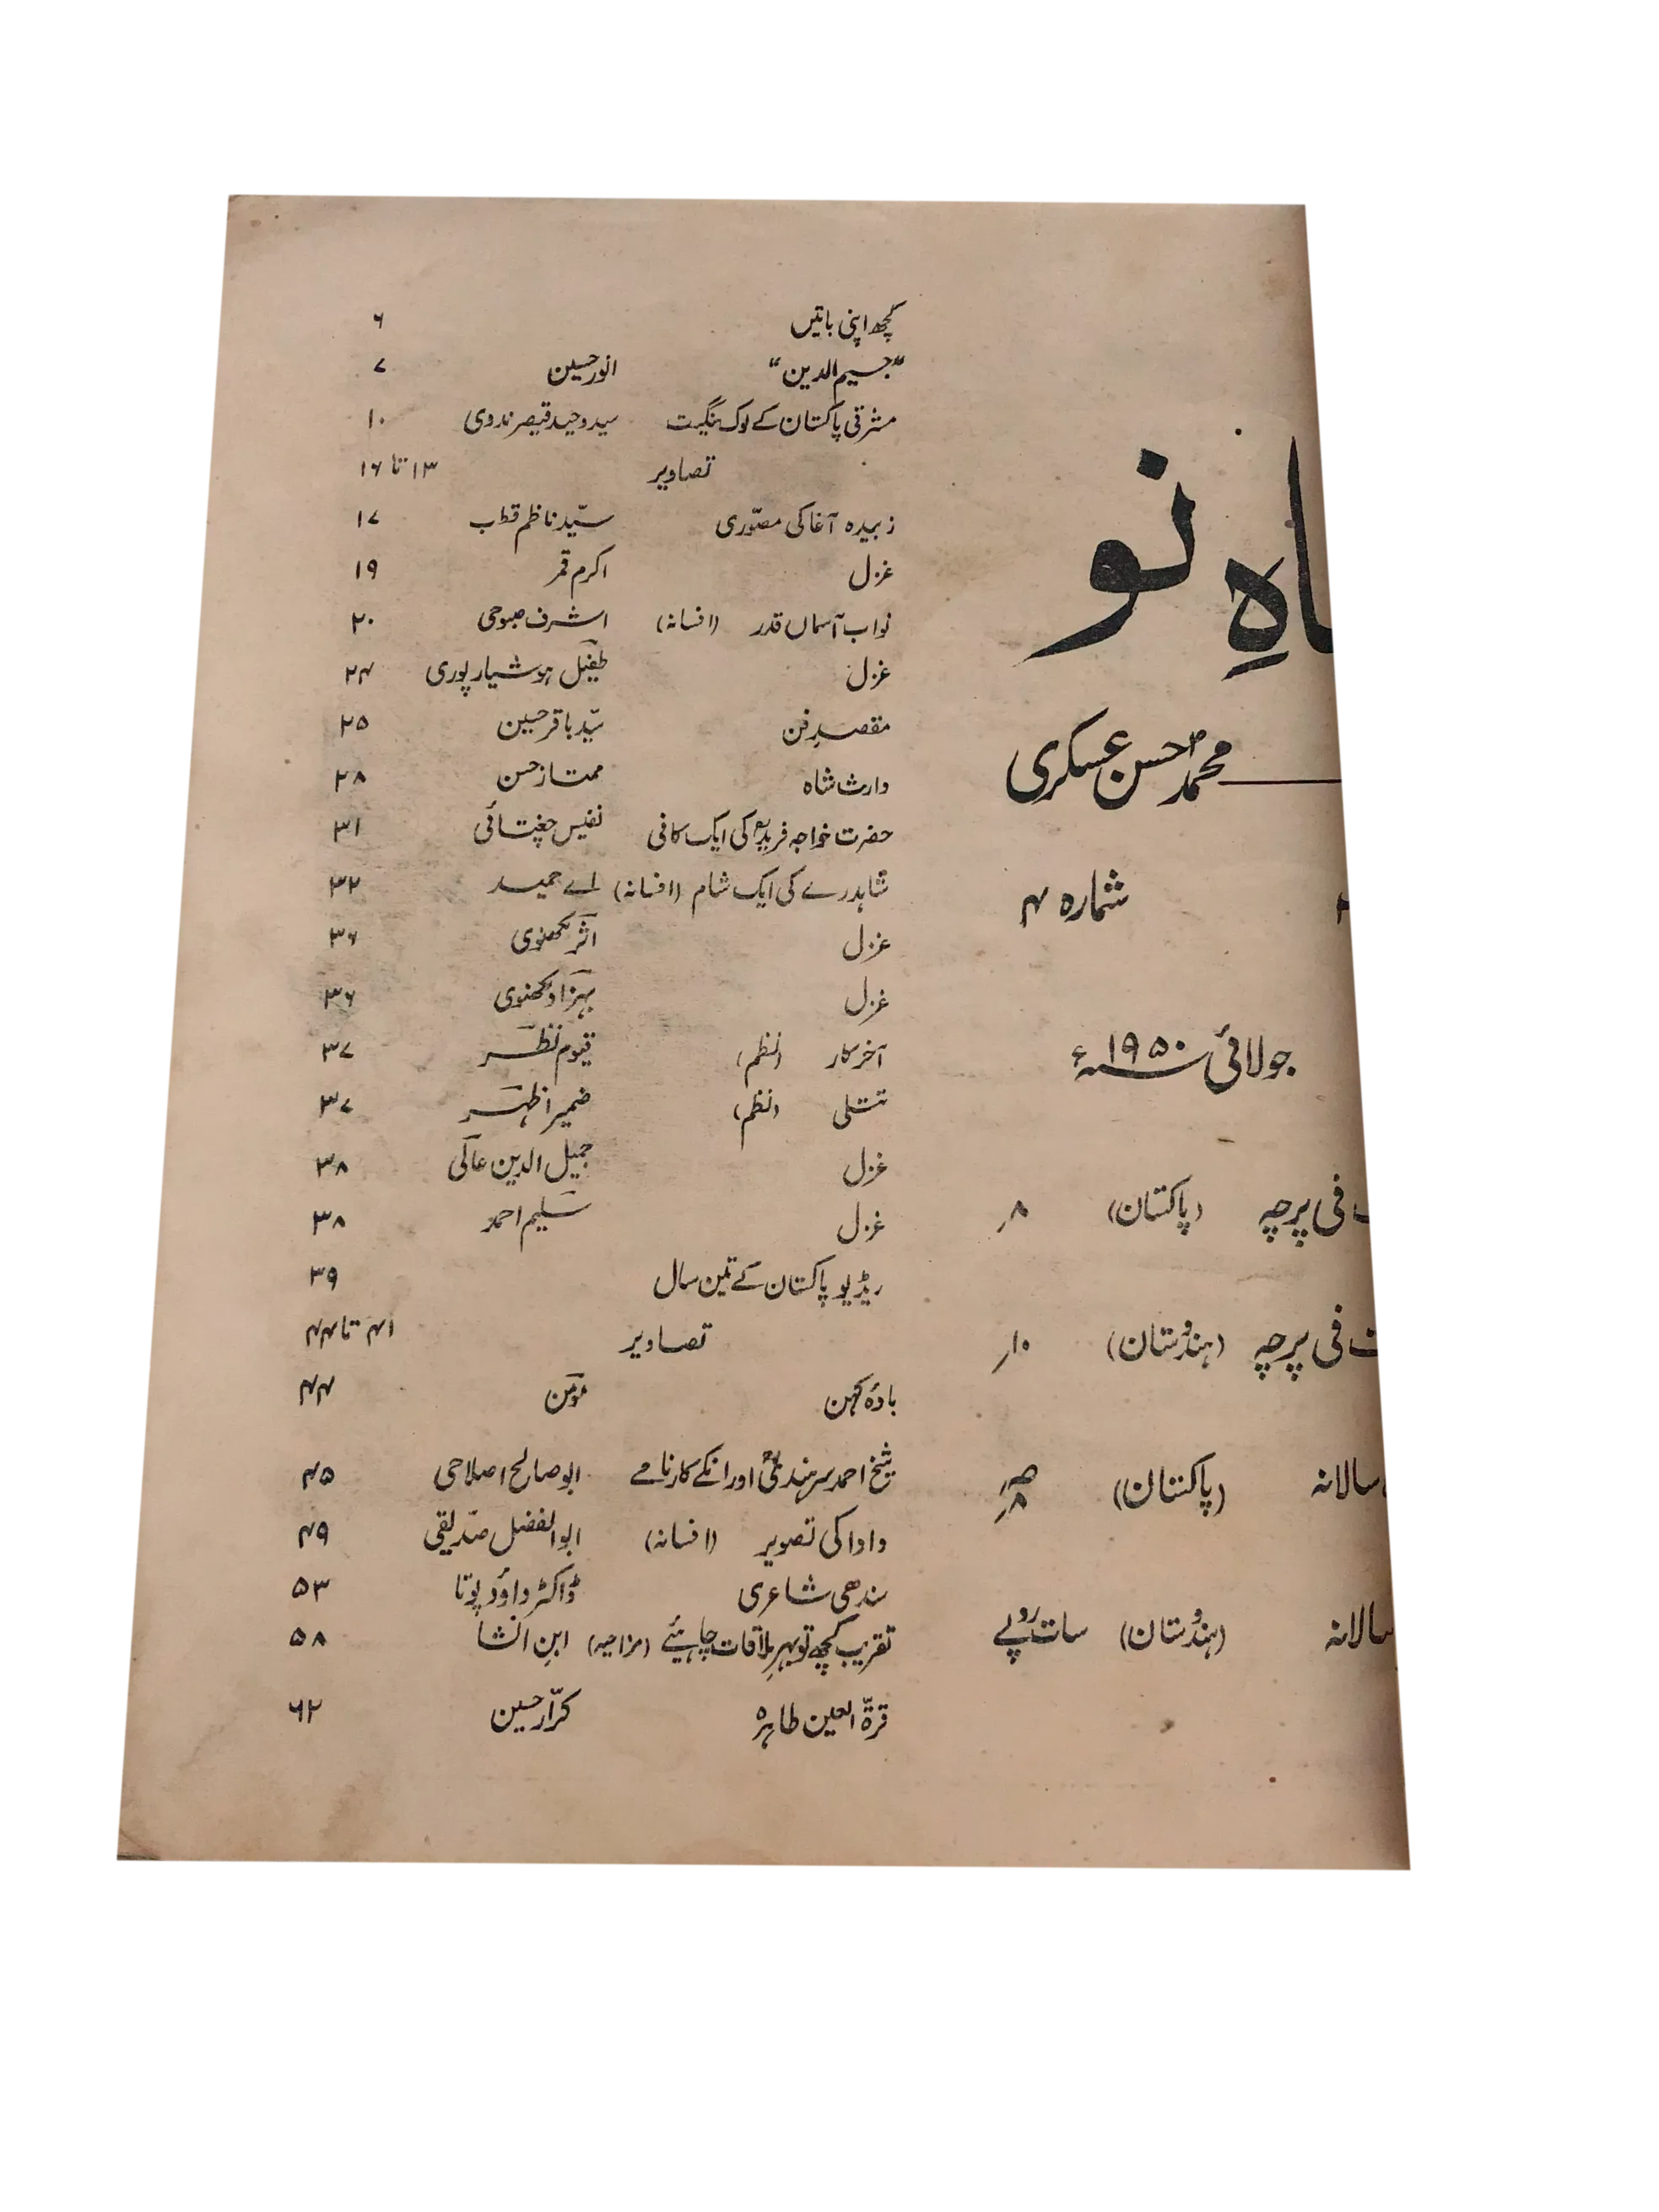 ماہِ نو
محمد حسن عسکری
شمارہ ۴
جولائی سنہ ۱۹۵۰ء
فی پرچہ (پاکستان) ۸ر
فی پرچہ (ہندوستان) ۱۰ر
سالانہ (پاکستان)
سالانہ (ہندوستان) سات روپے
کچھ اپنی باتیں ۶
"جسیم الدین" انور حسین ۷
مشرقی پاکستان کے لوک گیت سید وحید قیصر ندوی ۱۰
تصاویر ۱۳ تا ۱۶
زبیدہ آغا کی مصوّری سیّد ناظم قطب ۱۷
غزل اکرم قمر ۱۹
نواب آسماں قدر (افسانہ) اشرف صبوحی ۲۰
غزل طفیل ہوشیارپوری ۲۴
مقصدِ فن سیّد باقر حسین ۲۵
وارث شاہ ممتاز حسن ۲۸
حضرت خواجہ فریدؒ کی ایک کافی نفیس چغتائی ۳۱
شاہدرے کی ایک شام (افسانہ) اے حمید ۳۲
غزل اثر لکھنوی ۳۶
غزل بہزاد لکھنوی ۳۶
آخر کار (نظم) قیوم نظر ۳۷
تتلی (نظم) ضمیر اظہر ۳۷
غزل جمیل الدین عالی ۳۸
غزل سلیم احمد ۳۸
ریڈیو پاکستان کے تین سال ۳۹
تصاویر ۴۱ تا ۴۴
بادۂ کہن مومن ۴۴
شیخ احمد سرہندیؒ اور انکے کارنامے ابو صالح اصلاحی ۴۵
دادا کی تصویر (افسانہ) ابو الفضل صدّیقی ۴۹
سندھی شاعری ڈاکٹر داؤد پوتا ۵۳
تقریب کچھ تو بہرِ ملاقات چاہیئے (مزاحیہ) ابنِ انشا ۵۸
قرۃ العین طاہرہ کرّار حسین ۶۲